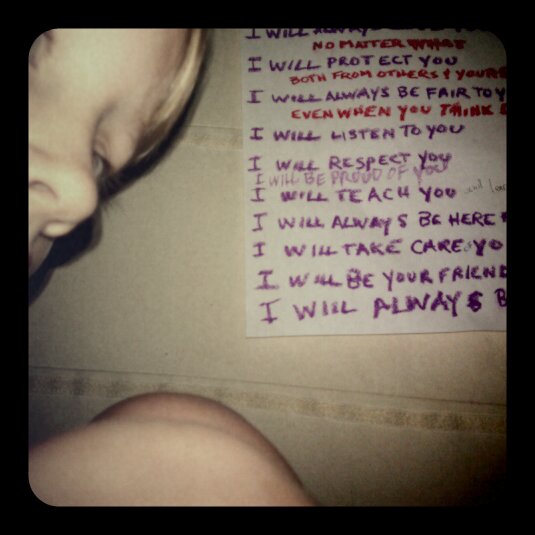 I WILL ALWAYS
NO MATTER WHAT
I WILL PROTECT YOU
BOTH FROM OTHERS + YOURS
I WILL ALWAYS BE FAIR TO Y
EVEN WHEN YOU THINK
I WILL LISTEN TO YOU
I WILL RESPECT YOU
I WILL BE PROUD OF YOU
I WILL TEACH YOU and
I WILL ALWAYS BE HERE
I WILL TAKE CARE YO
I WILL BE YOUR FRIEND
I WILL ALWAYS B